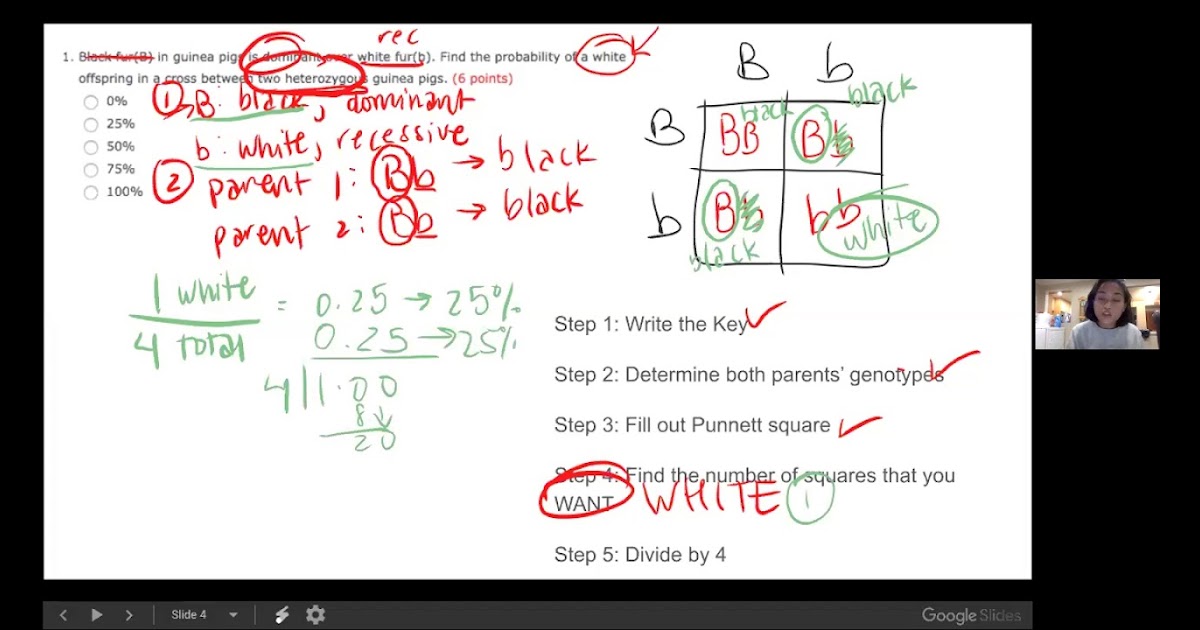 rec
1. Black fur(B) in guinea pigs is dominant over white fur(b). Find the probability of a white
offspring in a cross between two heterozygous guinea pigs. (6 points)
0%
25%
50%
75%
100%
① B: black, dominant
b: white, recessive
② parent 1: Bb → black
parent 2: Bb → black
B b
B BB black Bb black
b Bb black bb white
1 white = 0.25 → 25%
4 total 0.25 → 25%
4 1.00
8↓
20
Step 1: Write the Key ✓
Step 2: Determine both parents' genotypes ✓
Step 3: Fill out Punnett square ✓
Step 4: Find the number of squares that you
WANT WHITE 1
Step 5: Divide by 4
Slide 4
Google Slides